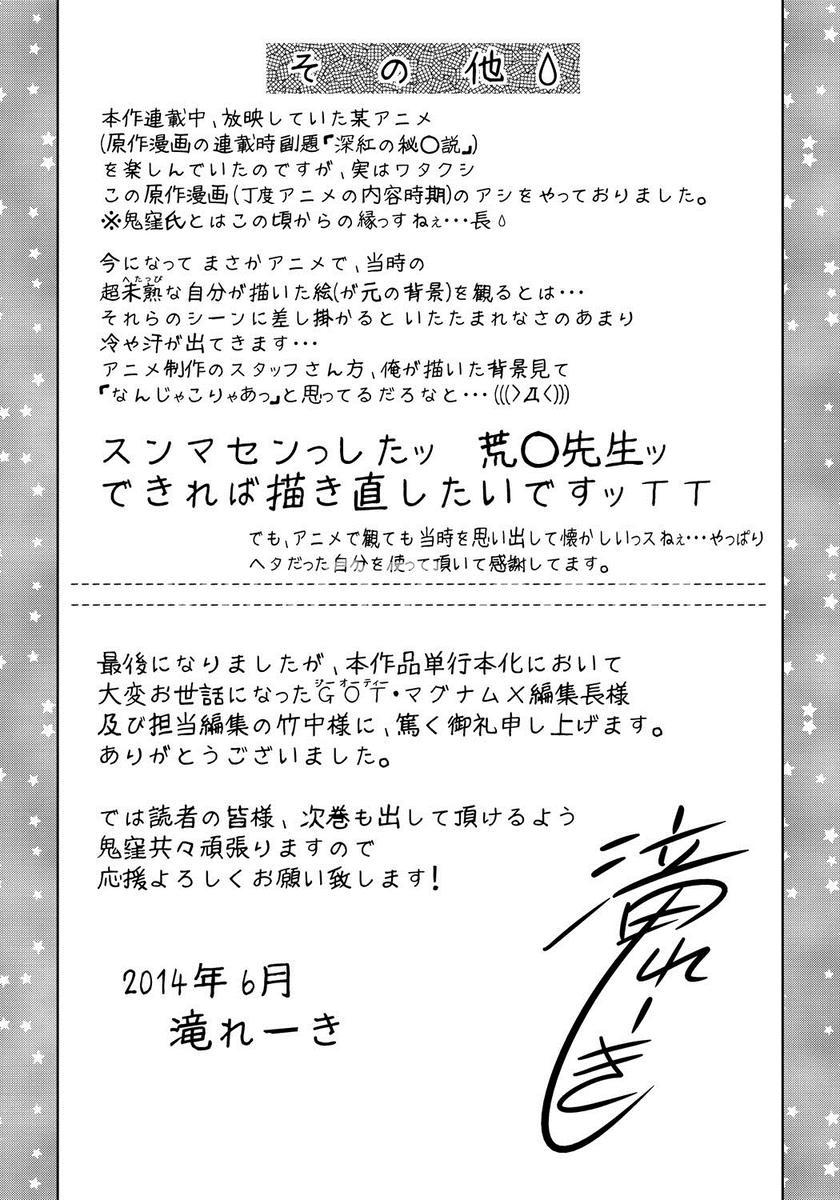 その他💧
本作連載中、放映していた某アニメ
(原作漫画の連載時副題『深紅の秘〇説』)
を楽しんでいたのですが、実はワタクシ
この原作漫画(丁度アニメの内容時期)のアシをやっておりました。
※鬼窪氏とはこの頃からの縁っすねぇ・・・長💧
今になって まさかアニメで、当時の
へたっぴ
超未熟な自分が描いた絵(が元の背景)を観るとは・・・
それらのシーンに差し掛かると いたたまれなさのあまり
冷や汗が出てきます・・・
アニメ制作のスタッフさん方、俺が描いた背景見て
『なんじゃこりゃあっ』と思ってるだろなと・・・(((>Д<)))
スンマセンっしたッ 荒〇先生ッ
できれば描き直したいですッTT
でも、アニメで観ても当時を思い出して懐かしいっスねぇ・・・やっぱり
ヘタだった自分を使って頂いて感謝してます。
最後になりましたが、本作品単行本化において
ジーオーティー
大変お世話になったGOT・マグナムX編集長様
及び担当編集の竹中様に、篤く御礼申し上げます。
ありがとうございました。
では読者の皆様、次巻も出して頂けるよう
鬼窪共々頑張りますので
応援よろしくお願い致します!
2014年6月
滝れーき
滝れーき